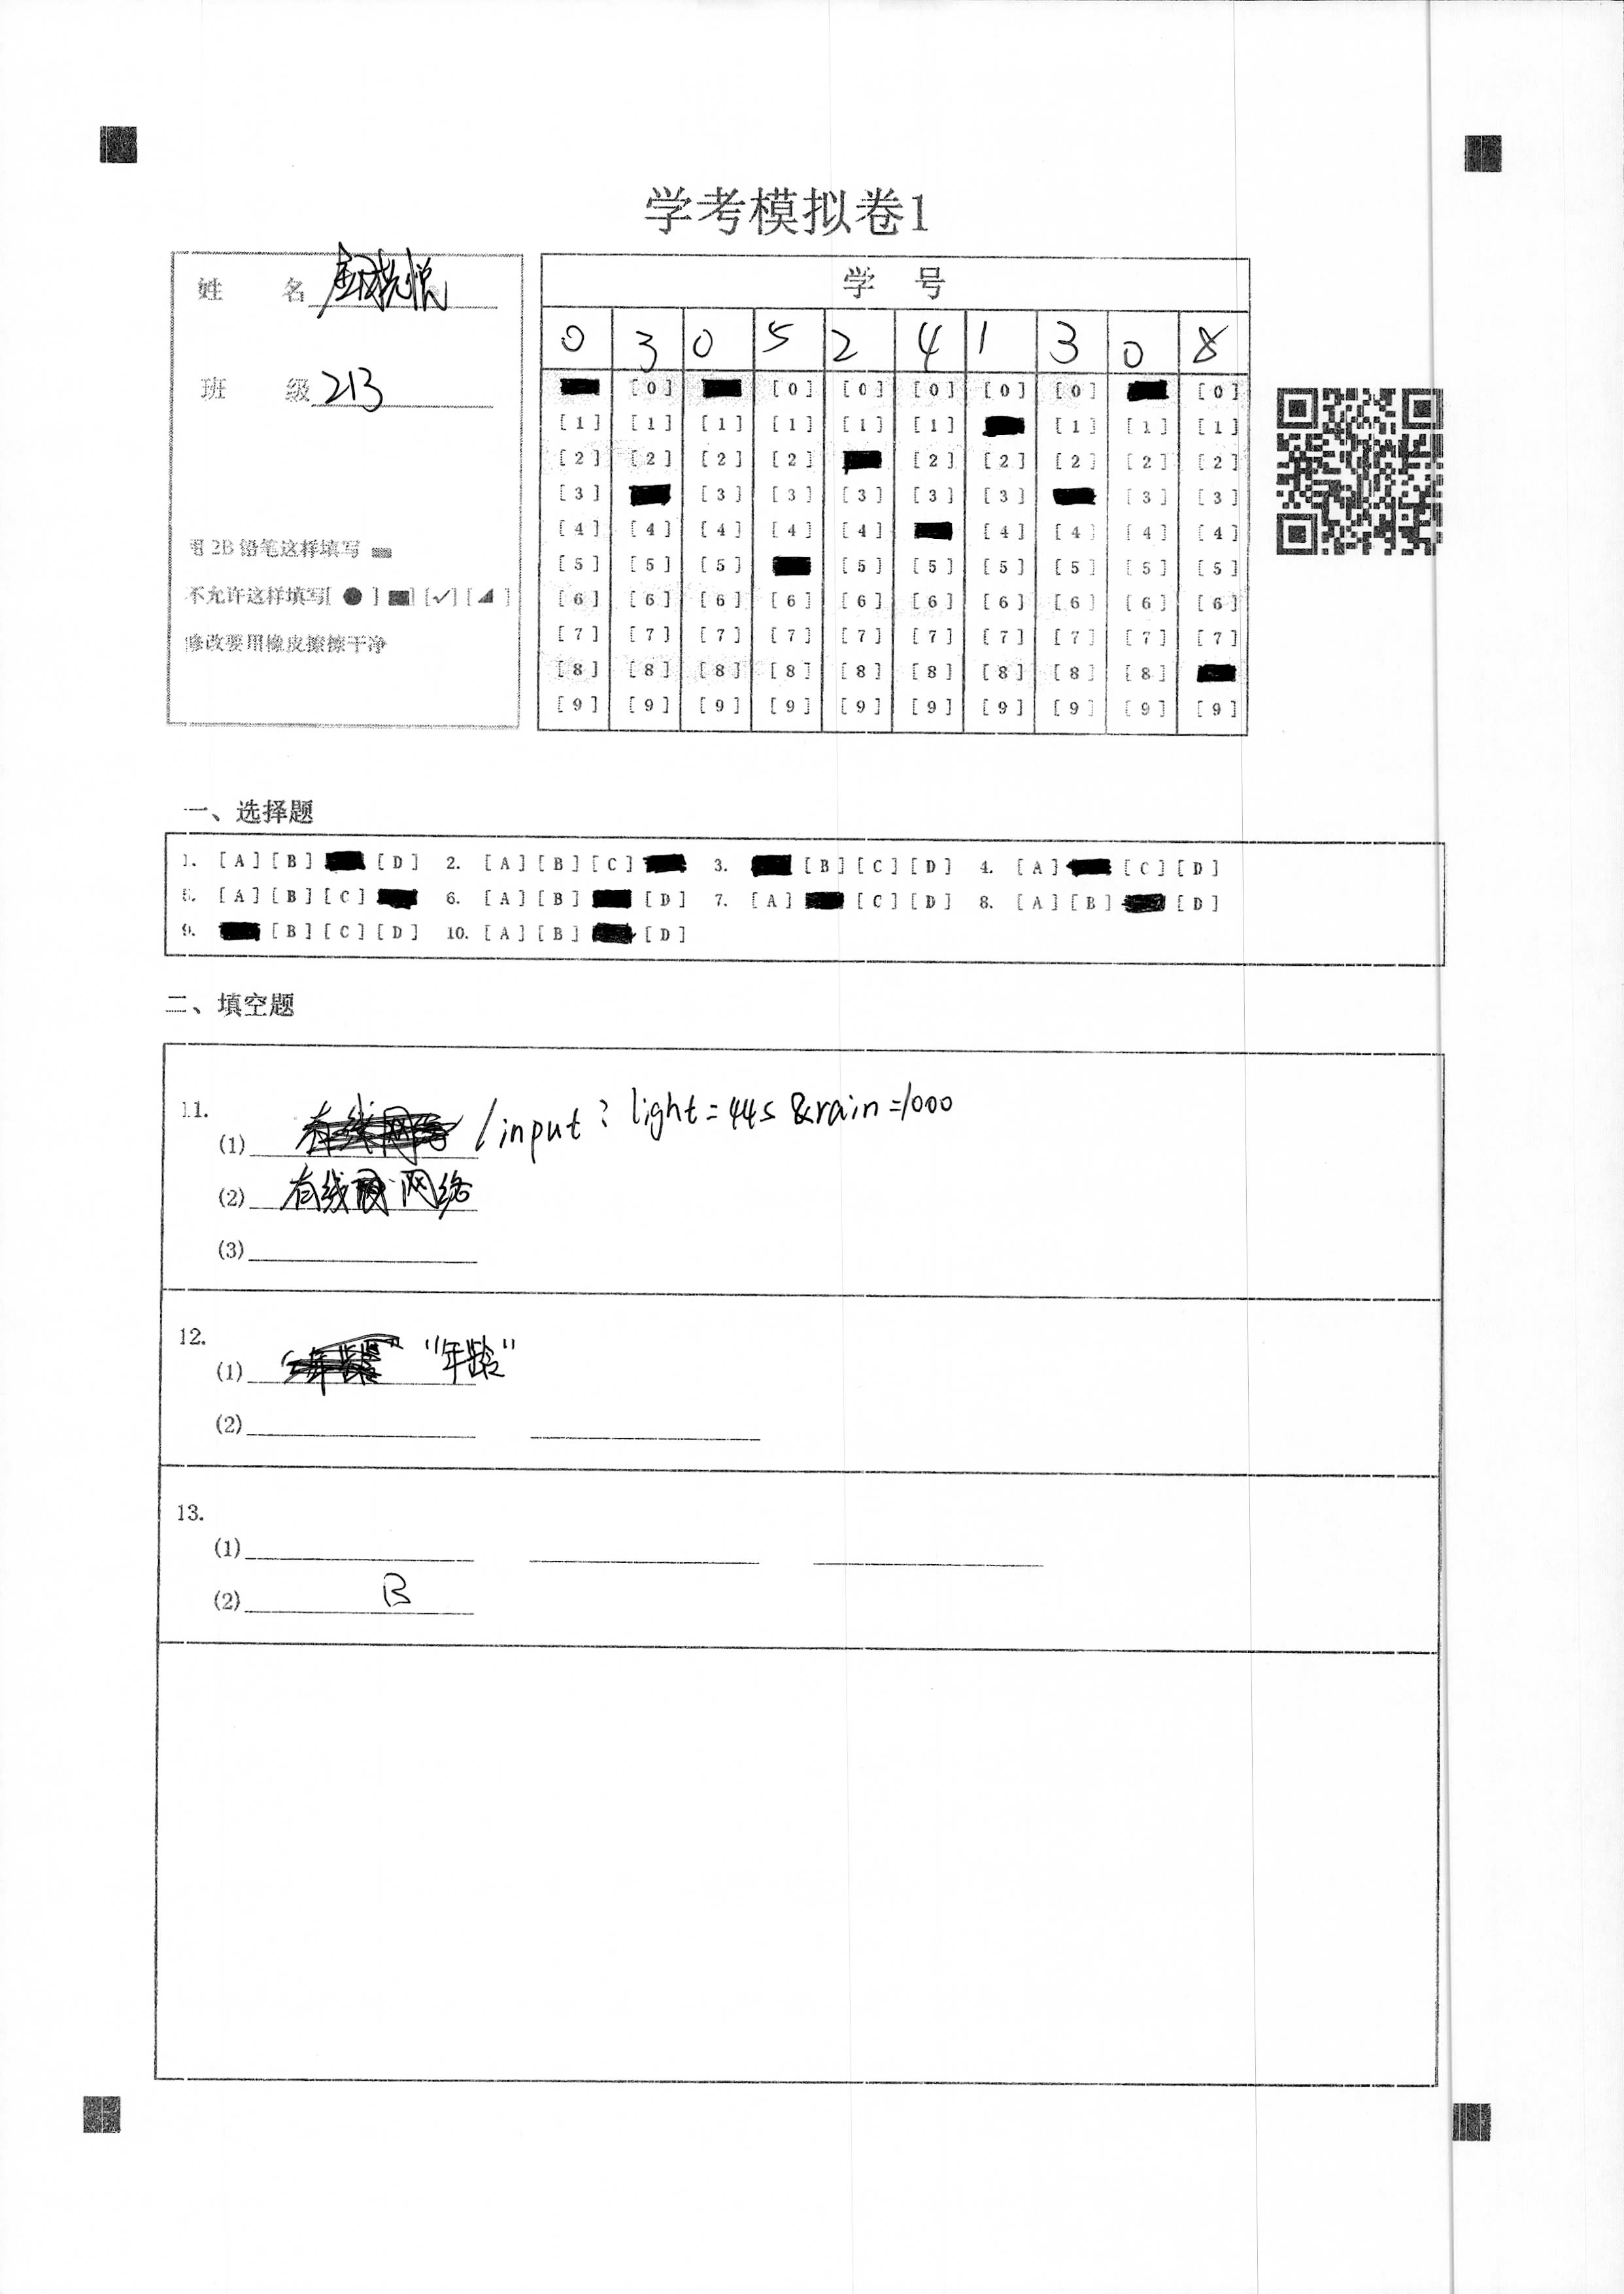 学考模拟卷1
姓 名
班 级 213
用 2B 铅笔这样填写
不允许这样填写[ ● ] [✓] [ ]
修改要用橡皮擦擦干净
学 号
0 3 0 5 2 4 1 3 0 8
[0] [0] [0] [0] [0] [0] [0]
[1] [1] [1] [1] [1] [1] [1] [1] [1]
[2] [2] [2] [2] [2] [2] [2] [2] [2]
[3] [3] [3] [3] [3] [3] [3] [3]
[4] [4] [4] [4] [4] [4] [4] [4] [4]
[5] [5] [5] [5] [5] [5] [5] [5] [5]
[6] [6] [6] [6] [6] [6] [6] [6] [6] [6]
[7] [7] [7] [7] [7] [7] [7] [7] [7] [7]
[8] [8] [8] [8] [8] [8] [8] [8] [8]
[9] [9] [9] [9] [9] [9] [9] [9] [9] [9]
一、选择题
1. [A] [B] [D] 2. [A] [B] [C] 3. [B] [C] [D] 4. [A] [C] [D]
5. [A] [B] [C] 6. [A] [B] [D] 7. [A] [C] [D] 8. [A] [B] [D]
9. [B] [C] [D] 10. [A] [B] [D]
二、填空题
11.
(1) /input?light=445&rain=1000
(2) 有线网络
(3)
12.
(1) "年龄"
(2)
13.
(1)
(2) B